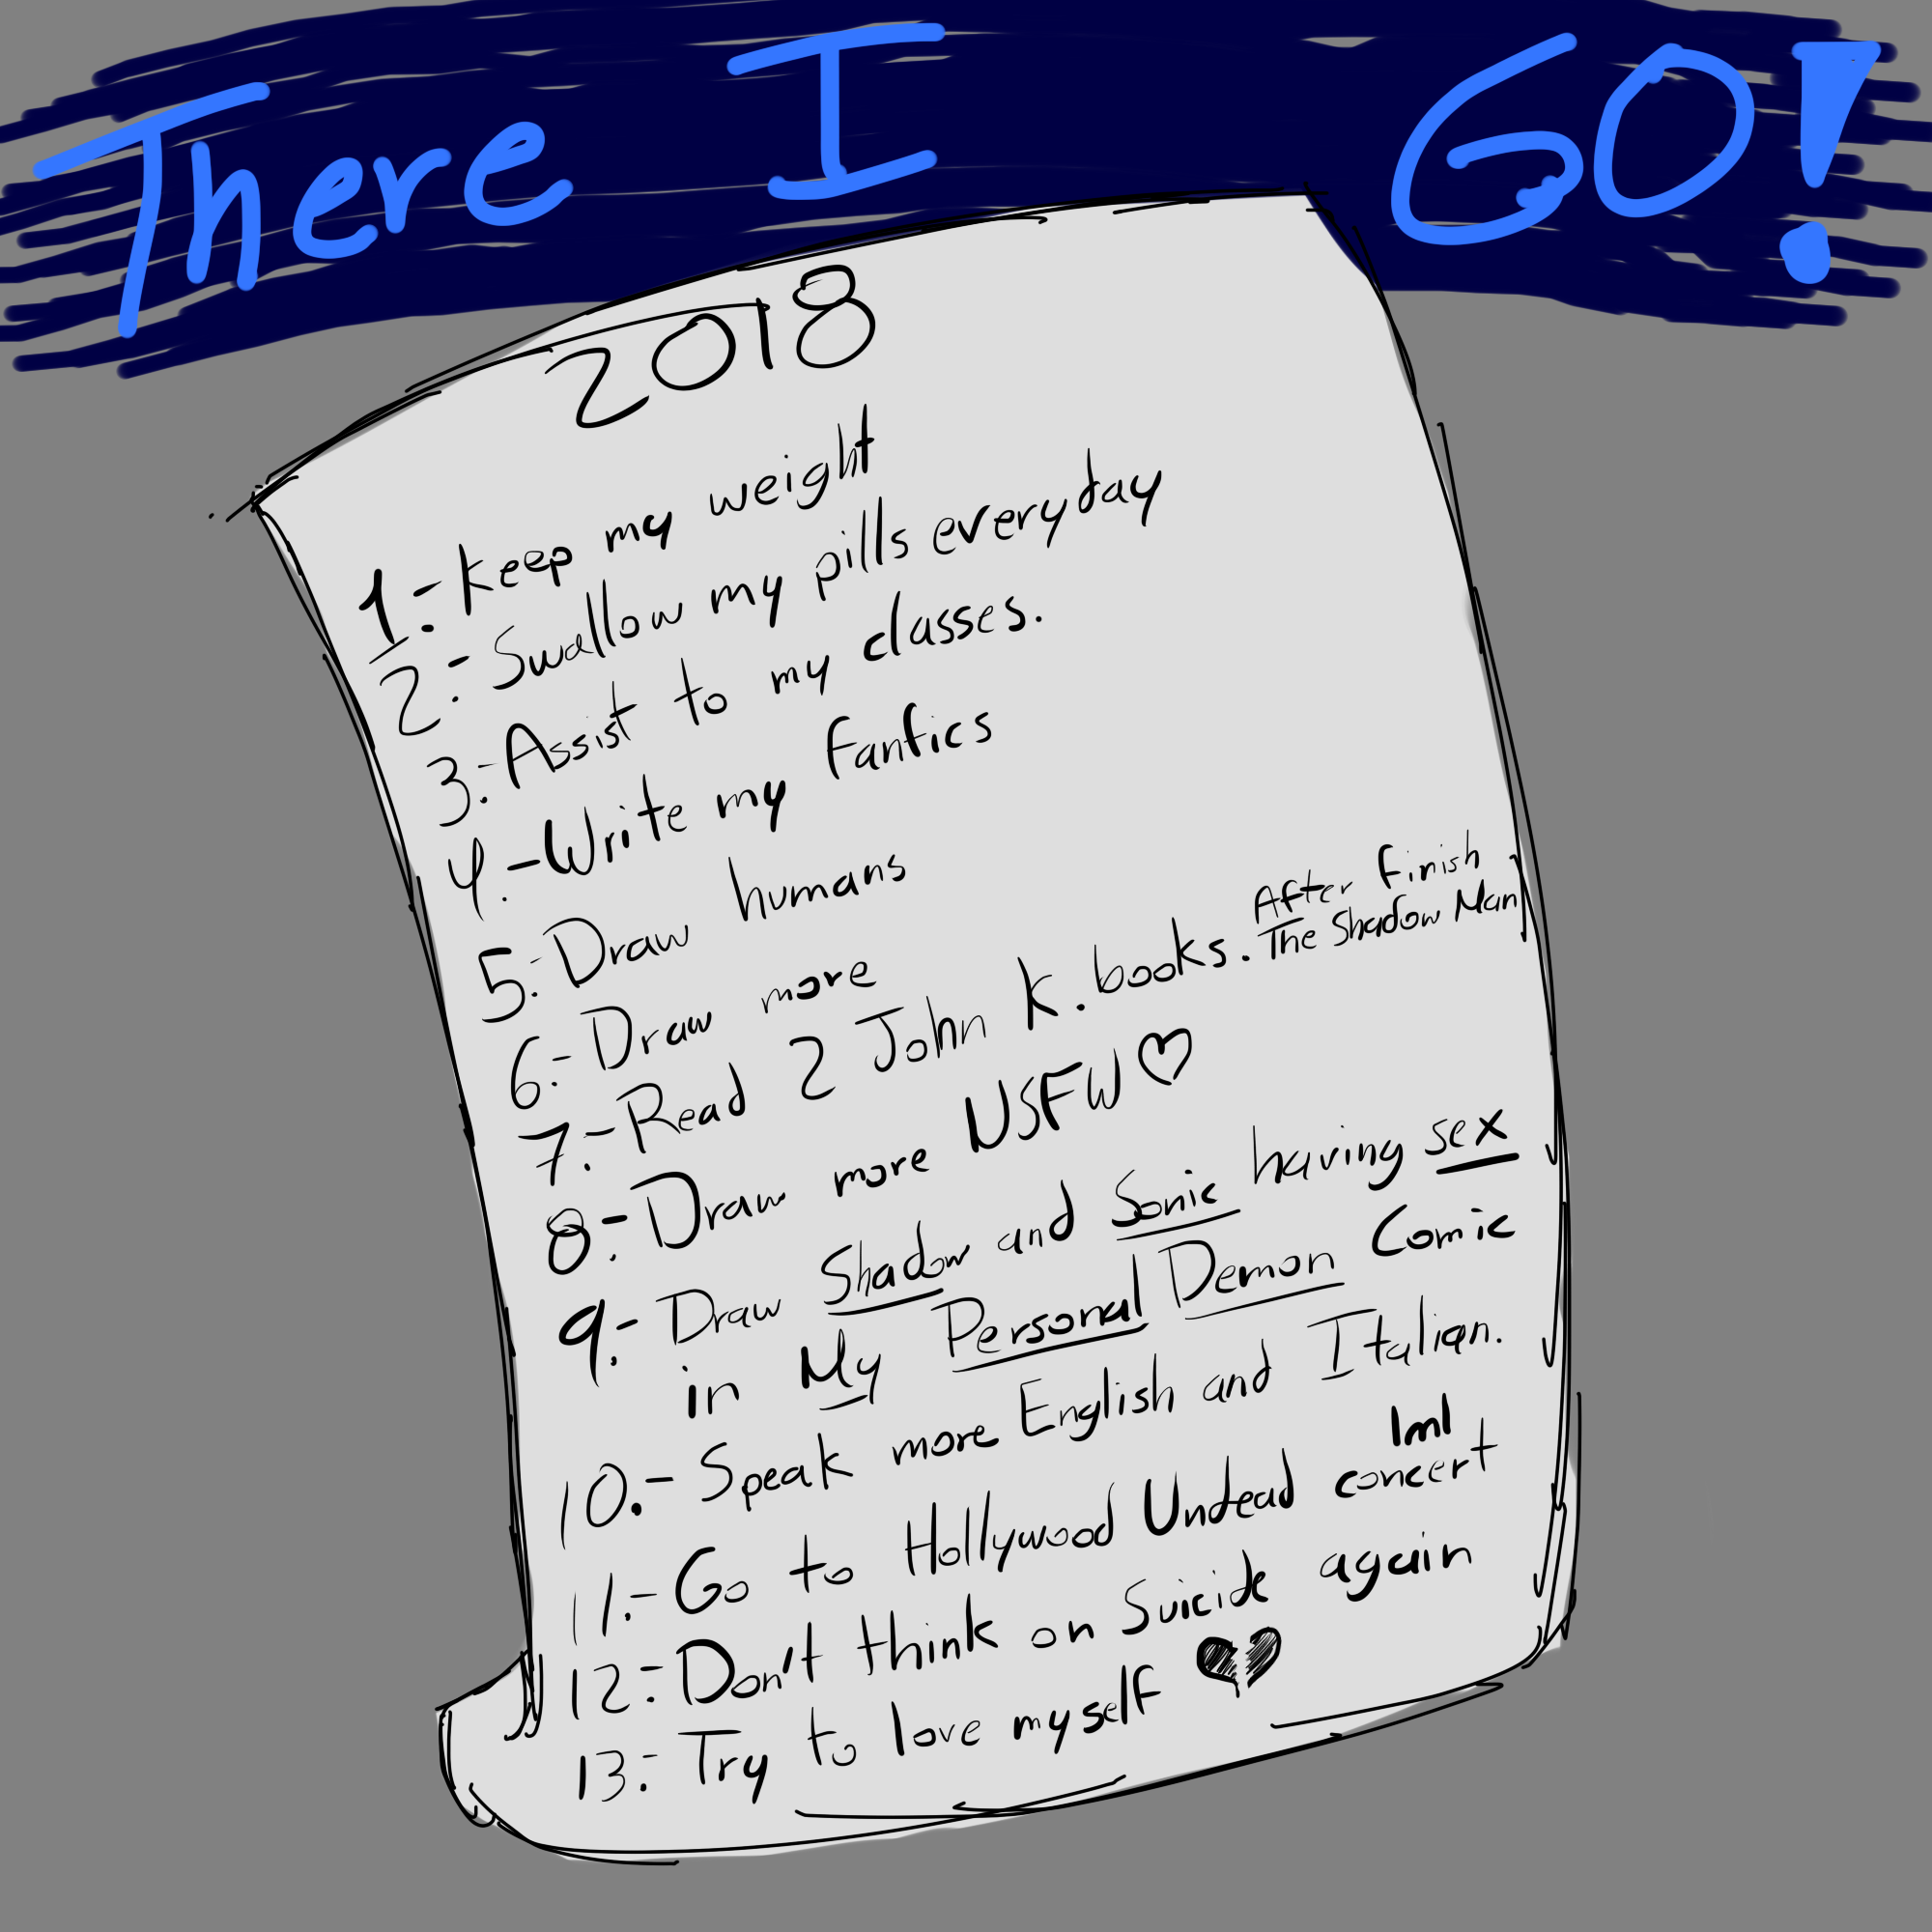 There I GO!
2018
1.- Keep my weight
2.- Swallow my pills every day
3.- Assist to my classes.
4.- Write my fanfics
5.- Draw humans
6.- Draw more
7.- Read 2 John K. books. After Finish
The Shadow Man
8.- Draw more USFW♡
9.- Draw Shadow and Sonic having sex
in My Personal Demon Comic
10.- Speak more English and Italian.
11.- Go to Hollywood Undead concert lml
12.- Don't think on Suicide again
13.- Try to love myself